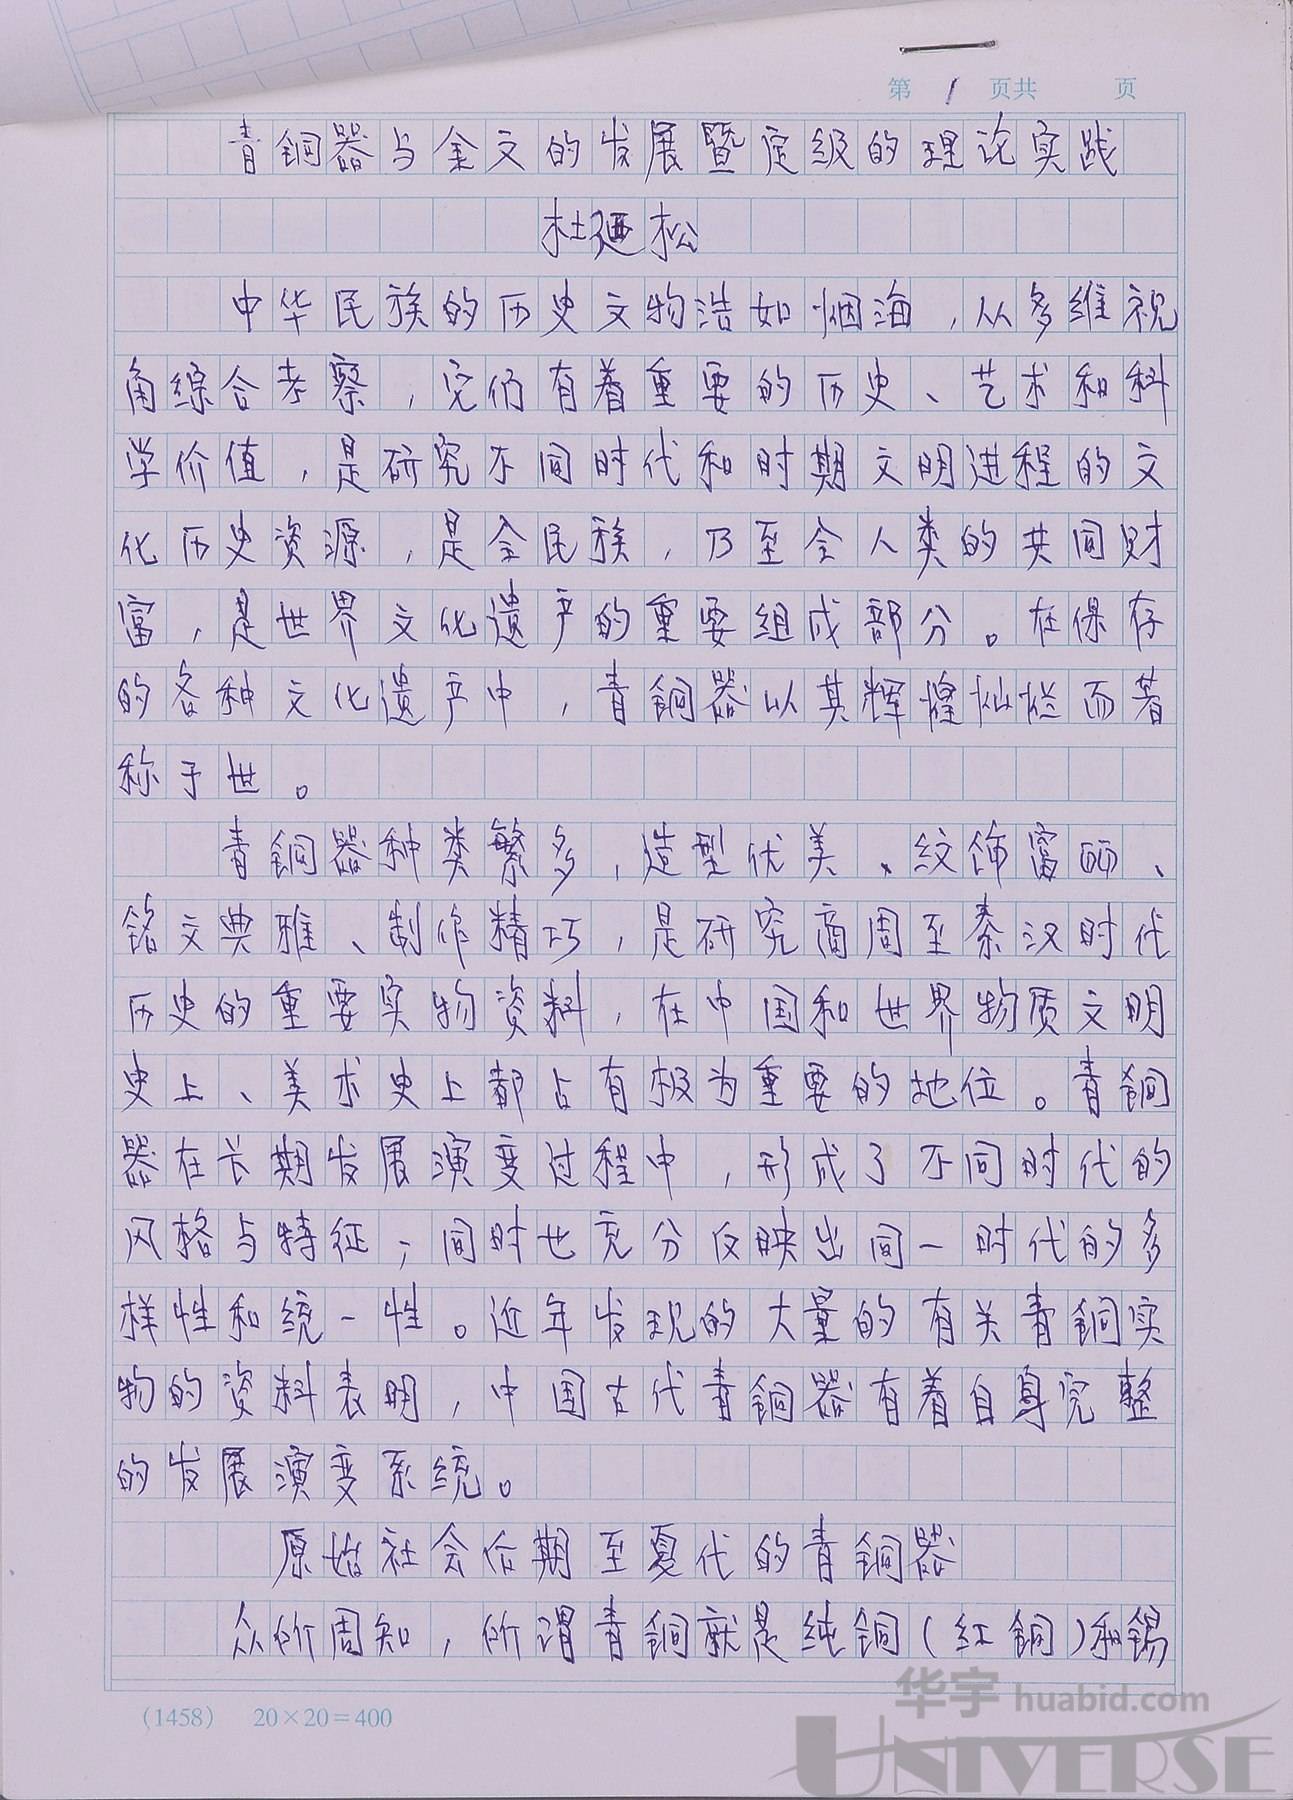 第 1 页共 页
青铜器与金文的发展暨定级的理论实践
杜迺松
中华民族的历史文物浩如烟海，从多维视
角综合考察，它们有着重要的历史、艺术和科
学价值，是研究不同时代和时期文明进程的文
化历史资源，是全民族，乃至全人类的共同财
富，是世界文化遗产的重要组成部分。在保存
的各种文化遗产中，青铜器以其辉煌灿烂而著
称于世。
青铜器种类繁多，造型优美、纹饰富丽、
铭文典雅、制作精巧，是研究商周至秦汉时代
历史的重要实物资料，在中国和世界物质文明
史上、美术史上都占有极为重要的地位。青铜
器在长期发展演变过程中，形成了不同时代的
风格与特征；同时也充分反映出同一时代的多
样性和统一性。近年发现的大量的有关青铜实
物的资料表明，中国古代青铜器有着自身完整
的发展演变系统。
原始社会后期至夏代的青铜器
众所周知，所谓青铜就是纯铜（红铜）和锡
(1458) 20×20=400
华宇 huabid.com
UNIVERSE